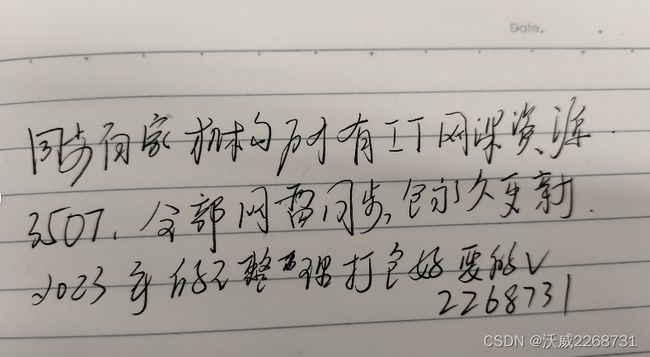 Date.
同步百家机构所有IT网课资源.
350T.全部网盘同步,包永久更新.
2023年的已整理打包好要的V
2268731
CSDN @沃威2268731